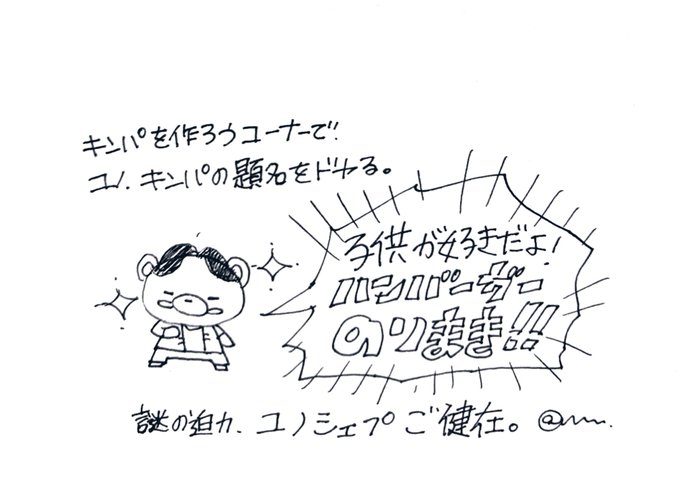 キンパを作ろうコーナーで!
ユノ、キンパの題名をドヤる。
子供が好きだよ!
ハンバーガー
のりまき!!
謎の迫力、ユノシェフご健在。